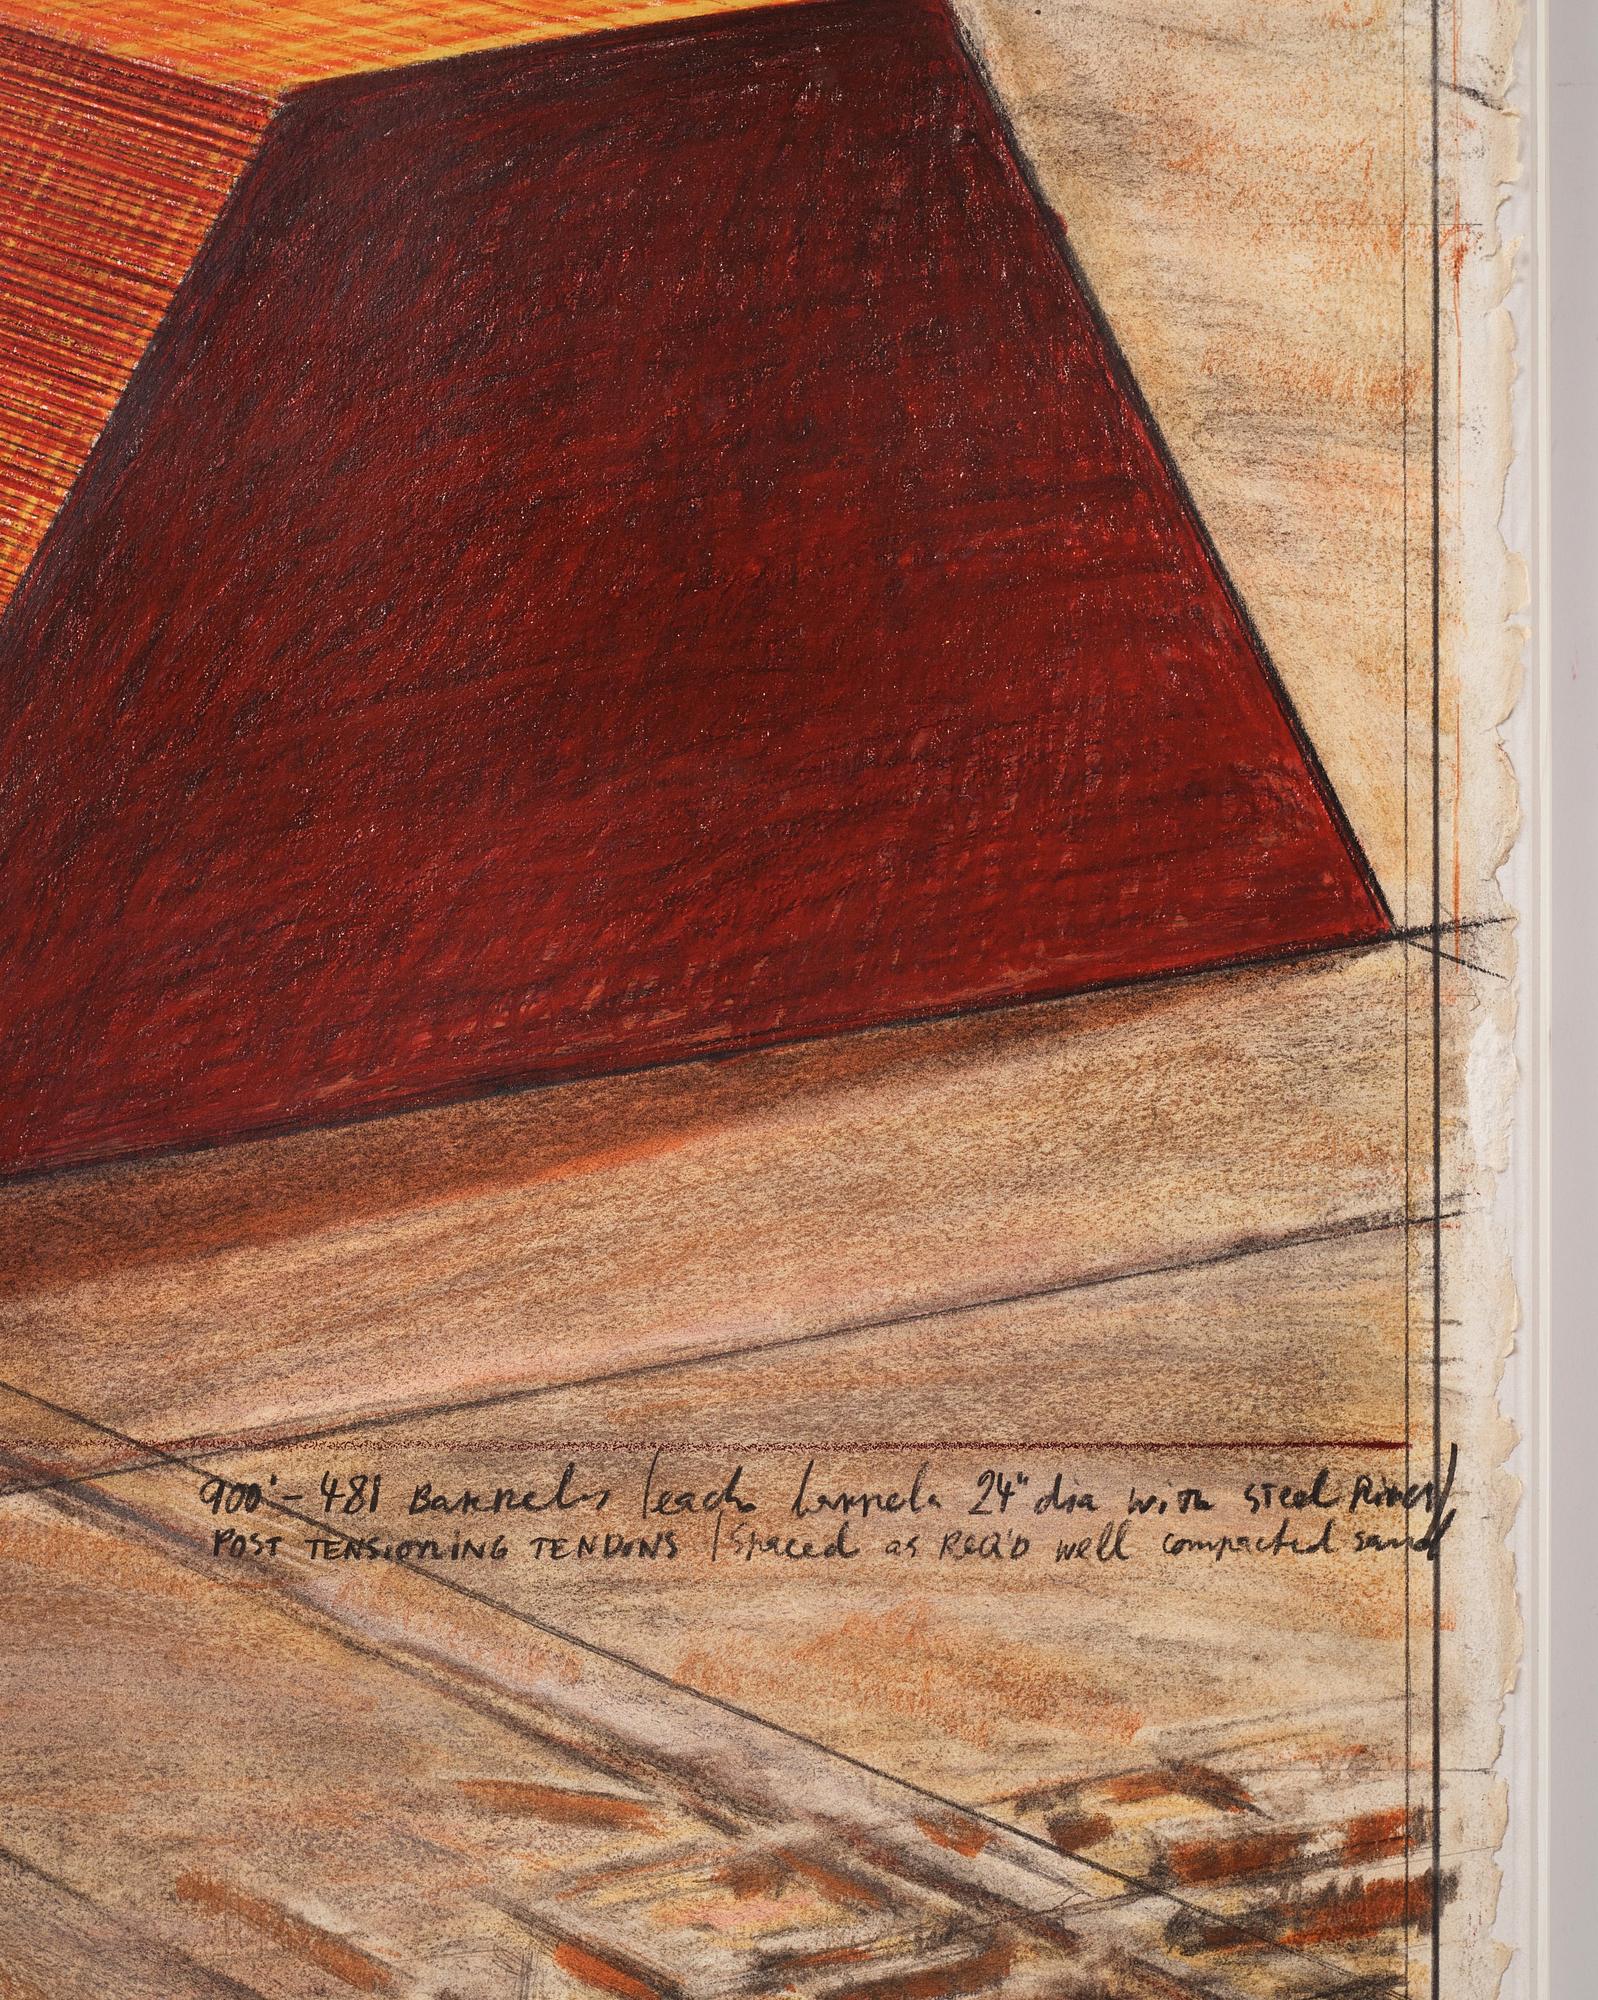 900' - 481 Barrels / each barrela 24" dia with steel River/
POST TENSIONING TENDONS / Spaced as REQ'D well compacted sand